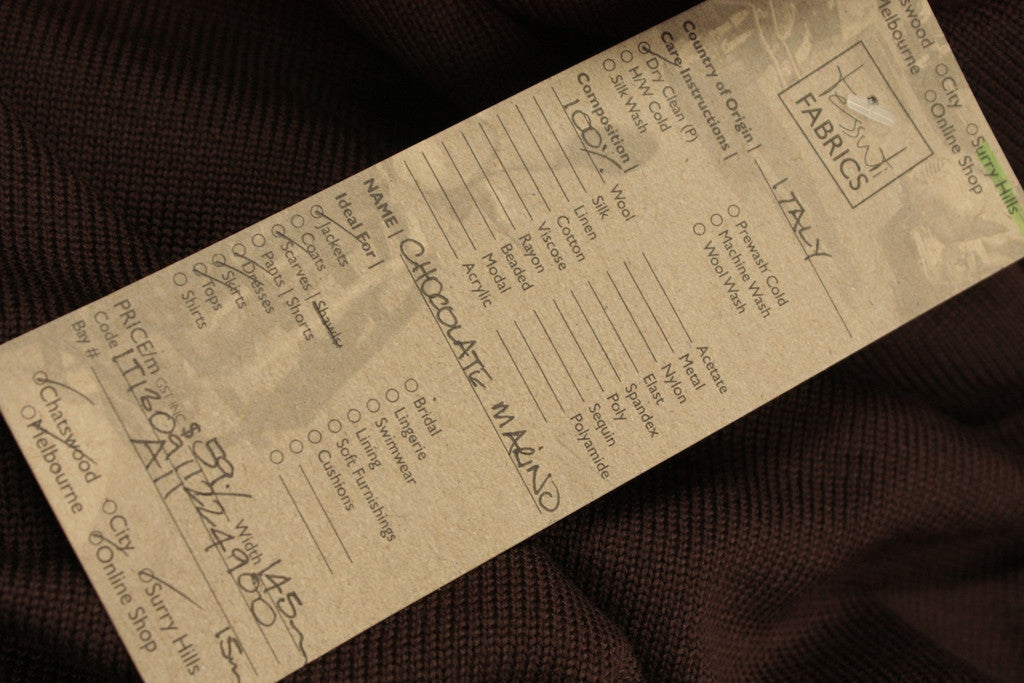 Tessuti
FABRICS
swood
Melbourne
City
Online Shop
Surry Hills
Country of Origin | ITALY
Care Instructions |
Dry Clean (P)
H/W Cold
Silk Wash
Prewash Cold
Machine Wash
Wool Wash
Composition |
100% Wool
Silk
Linen
Cotton
Viscose
Rayon
Beaded
Modal
Acrylic
Acetate
Metal
Nylon
Elast
Spandex
Poly
Sequin
Polyamide
NAME | CHOCOLATE MARINO
Ideal For |
Jackets
Coats
Scarves / Shawls
Pants | Shorts
Dresses
Skirts
Tops
Shirts
Bridal
Lingerie
Swimwear
Lining
Soft Furnishings
Cushions
PRICE/m GST INC $59/ Width 145
Code
Bay # A11
15m
Chatswood
Melbourne
City
Online Shop
Surry Hills